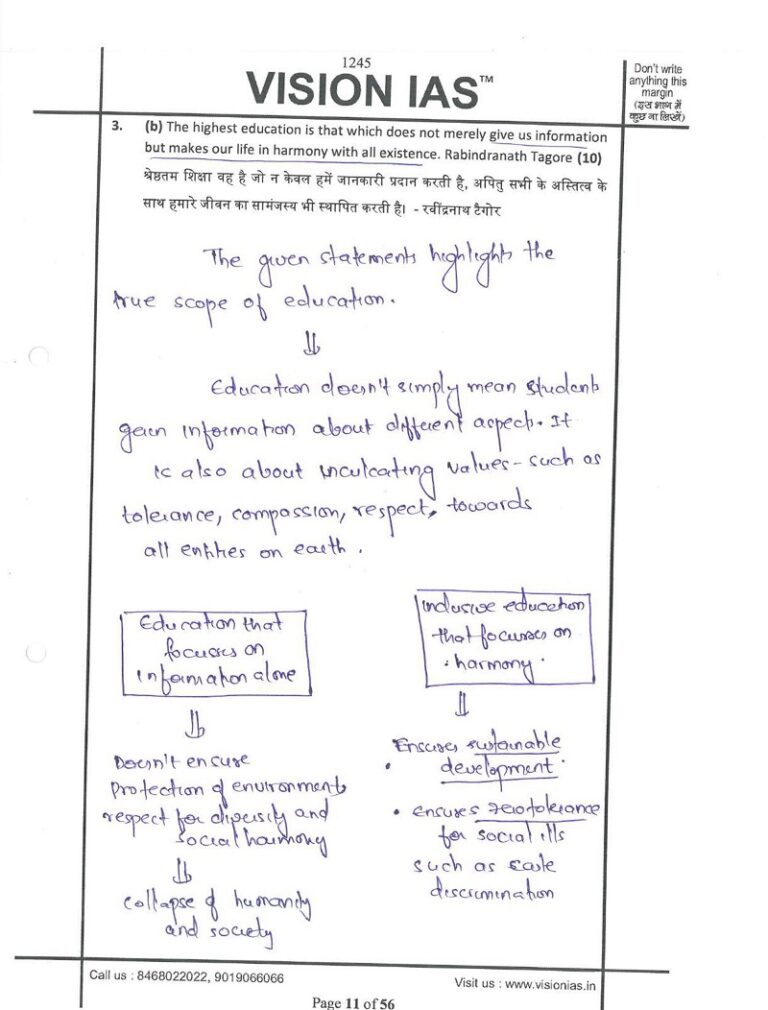 1245
VISION IAS™
Don't write
anything this
margin
(इस भाग में
कुछ ना लिखें)
3. (b) The highest education is that which does not merely give us information
but makes our life in harmony with all existence. Rabindranath Tagore (10)
श्रेष्ठतम शिक्षा वह है जो न केवल हमें जानकारी प्रदान करती है, अपितु सभी के अस्तित्व के
साथ हमारे जीवन का सामंजस्य भी स्थापित करती है। - रवींद्रनाथ टैगोर
The given statements highlights the
true scope of education.
⇓
Education doesn't simply mean students
gain information about different aspects. It
is also about inculcating values - such as
tolerance, compassion, respect, towards
all entities on earth.
Education that
focuses on
information alone
⇓
Doesn't ensure
protection of environment,
respect for diversity and
social harmony
⇓
Collapse of humanity
and society
Inclusive education
that focusses on
harmony.
⇓
Ensures sustainable
• development.
• ensures zero tolerance
for social ills
such as caste
discrimination
Call us : 8468022022, 9019066066
Visit us : www.visionias.in
Page 11 of 56